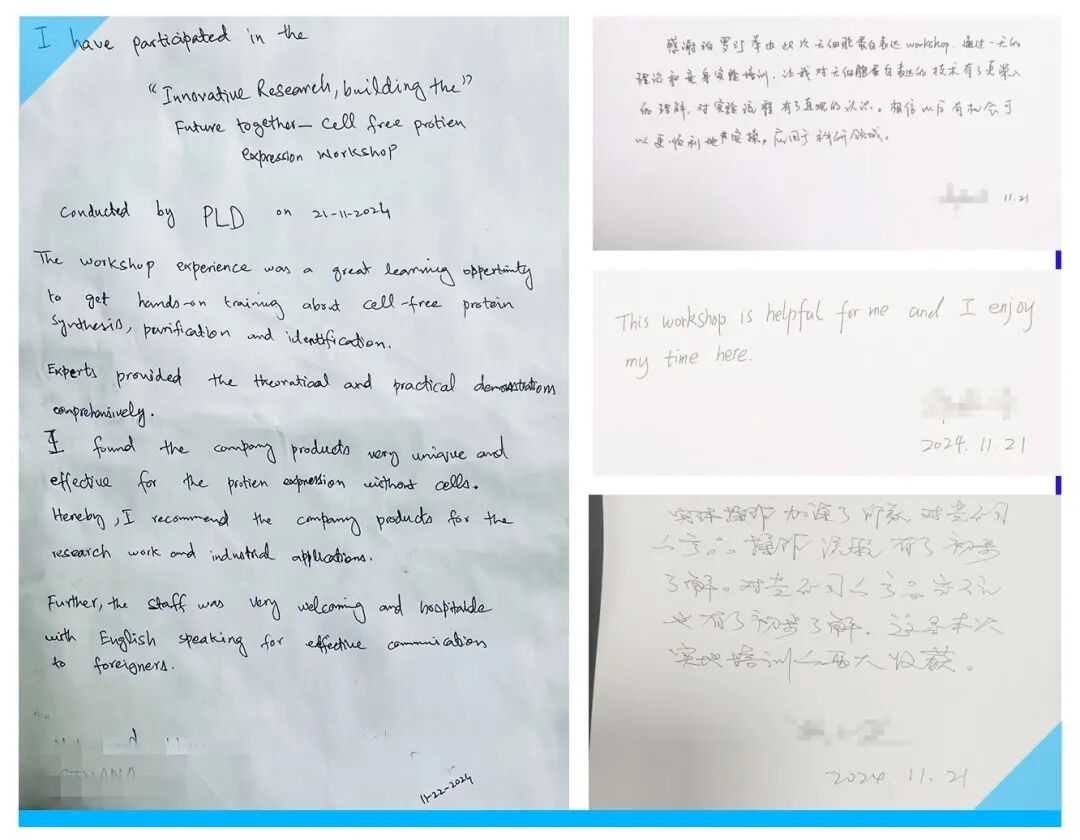 I have participated in the
"Innovative Research, building the"
Future together- Cell free protien
expression workshop
Conducted by PLD on 21-11-2024
The workshop experience was a great learning oppertunity
to get hands-on training about cell-free protein
synthesis, purification and identification.
Experts provided the theoratical and practical demonstrations
comprehensively.
I found the company products very unique and
effective for the protien expression without cells.
Hereby, I recommend the company products for the
research work and industrial applications.
Further, the staff was very welcoming and hospitable
with English speaking for effective communication
to foreigners.
11-22-2024
感谢珀罗汀举办此次无细胞蛋白表达workshop.通过一天的
理论和亲身实验培训,让我对无细胞蛋白表达的技术有了更深入
的理解,对实验流程有了直观的认识。相信以后有机会可
以更顺利地实操,应用于科研领域。
11.21
This workshop is helpful for me and I enjoy
my time here.
2024.11.21
实际操作加深了印象,对贵公司
产品操作流程有了初步
了解。对贵公司产品
也有了初步了解.这是本次
实地培训的两大收获。
2024.11.21